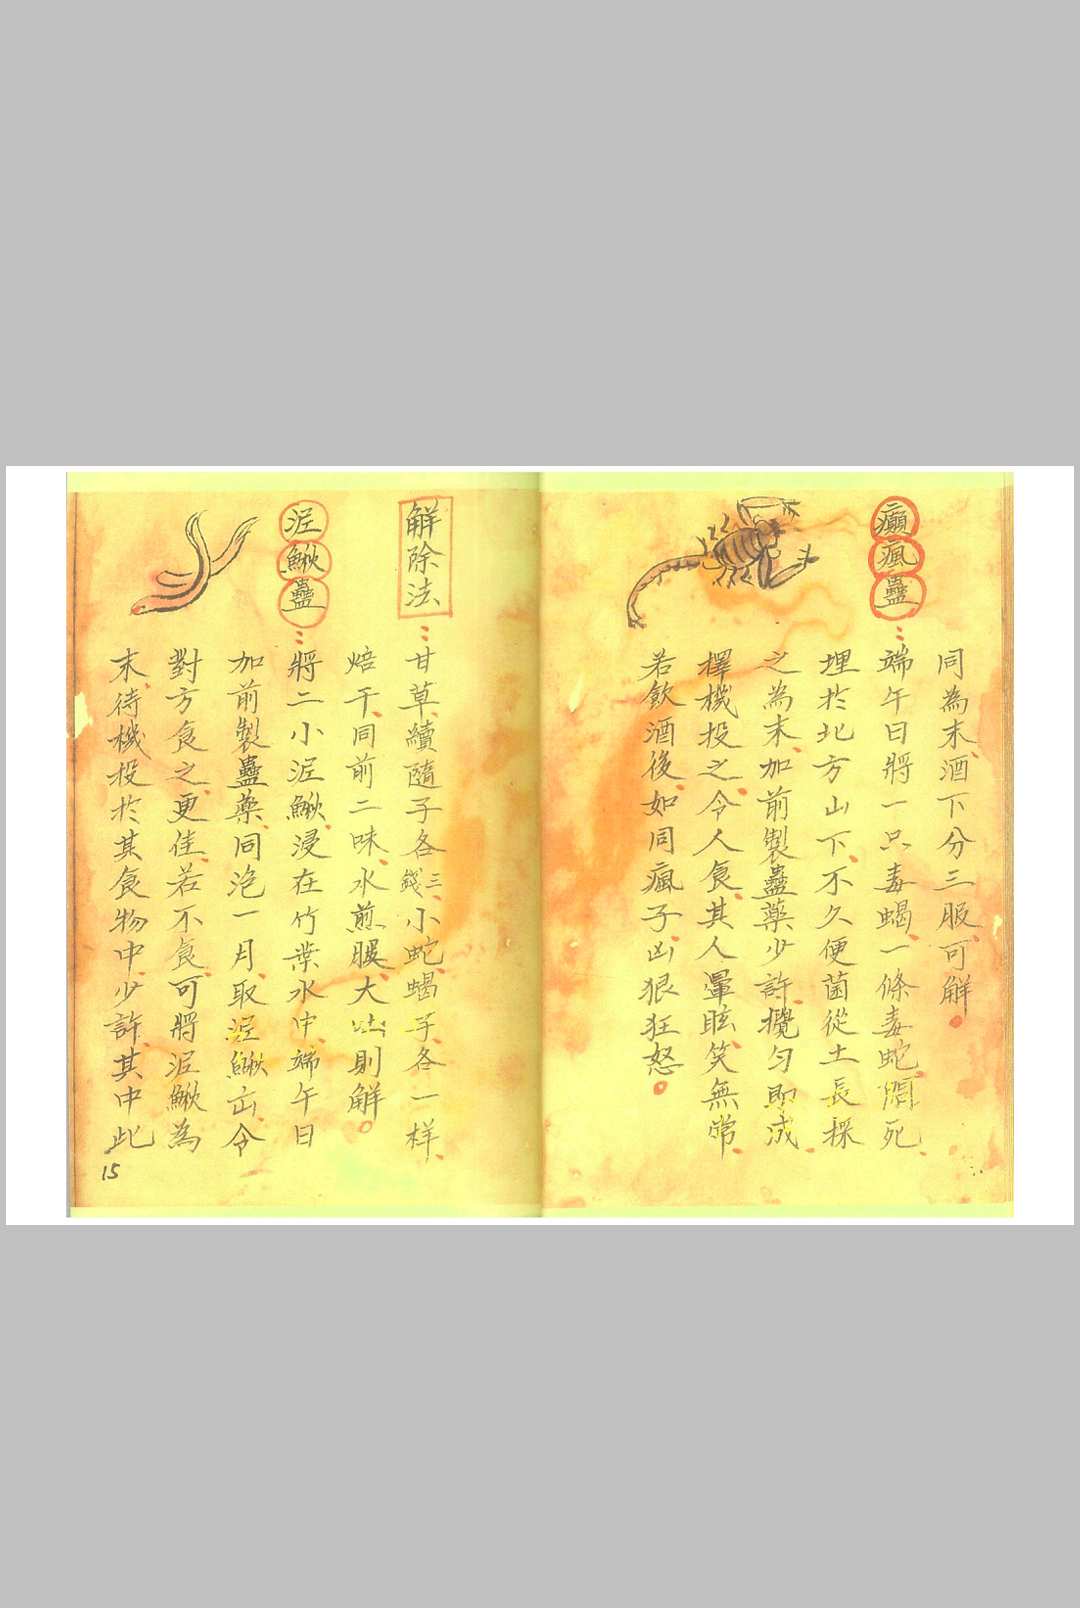 同為末酒下分三服可解
癲瘋蠱
端午日將一只毒蝎一條毒蛇悶死
埋於北方山下不久便菌從土長採
之為末加前製蠱藥少許攪勻即成
擇機投之令人食其人暈眩笑無常
若飲酒後如同瘋子凶狠狂怒
解除法
甘草續隨子各三錢小蛇蝎子各一样
焙干同前二味水煎服大吐則解
泥鰍蠱
將二小泥鰍浸在竹葉水中端午日
加前製蠱藥同泡一月取泥鰍出令
對方食之更佳若不食可將泥鰍為
末待機投於其食物中少許其中此
15